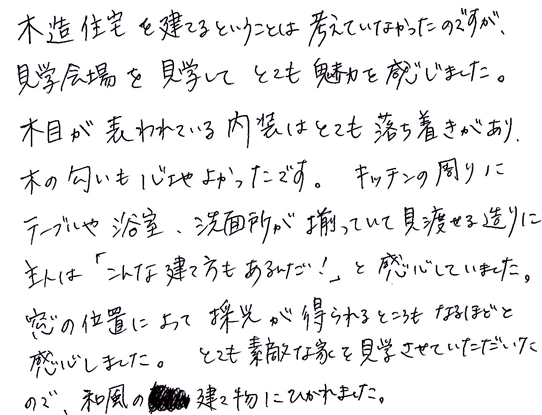 木造住宅を建てるということは考えていなかったのですが、
見学会場を見学してとても魅力を感じました。
木目が表われている内装はとても落ち着きがあり、
木の匂いも心地よかったです。キッチンの周りに
テーブルや浴室、洗面所が揃っていて見渡せる造りに
主人は「こんな建て方もあるんだ!」と感心していました。
窓の位置によって採光が得られるところもなるほどと
感心しました。とても素敵な家を見学させていただいた
ので、和風の建て物にひかれました。